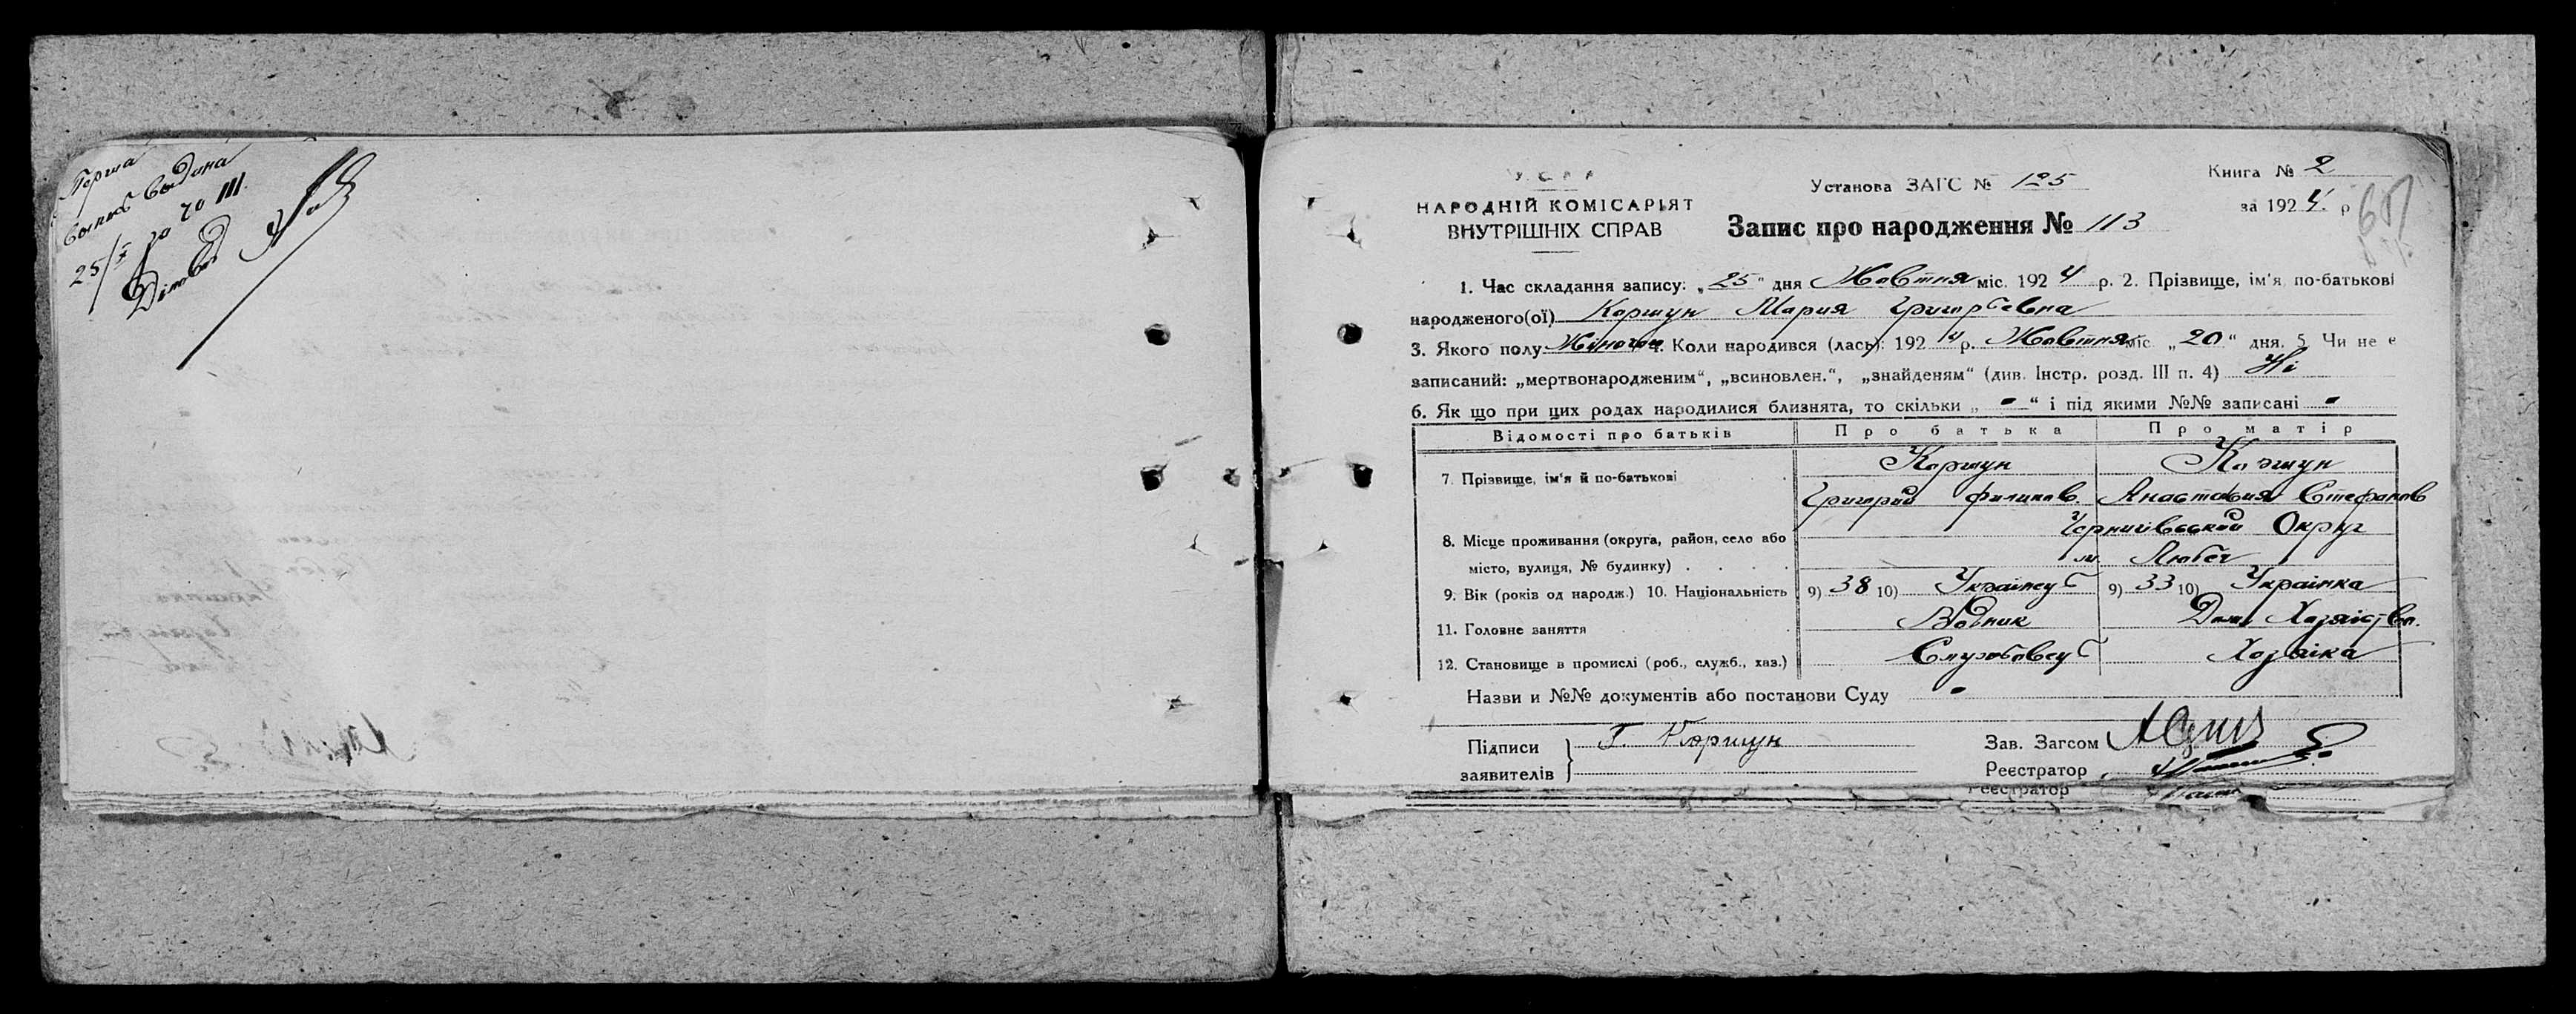 Перша
25/X
20 III
У С Р Р
НАРОДНІЙ КОМІСАРІЯТ
ВНУТРІШНІХ СПРАВ
Установа ЗАГС № 125
Книга № 2
за 1924 р
Запис про народження № 113
1. Час складання запису: „25" дня Жовтня міс. 1924 р. 2. Прізвище, ім'я, по-батькові
народженого(ої) Коршун Мария Григорьевна
3. Якого полу Жіночого 4. Коли народився (лась): 1924 р. Жовтня міс. „20" дня. 5. Чи не є
записаний: „мертвонародженим", „всиновлен.", „знайденям" (див. Інстр. розд. III п. 4) Ні
6. Як що при цих родах народилися близнята, то скільки „-" і під якими №№ записані -
Відомості про батьків Про батька Про матір
7. Прізвище, ім'я й по-батькові Коршун Коршун
Григорий Филипов. Анастасия Стефанов
8. Місце проживання (округа, район, село або Чернигівський Округ
місто, вулиця, № будинку) м Любеч
9. Вік (років од народж.) 10. Національність 9) 38 10) Українець 9) 33 10) Українка
11. Головне заняття Водник Дом. Хозяйство.
12. Становище в промислі (роб., служб., хаз.) Службовець Хозяйка
Назви и №№ документів або постанови Суду -
Підписи Г. Коршун
заявителів
Зав. Загсом
Реєстратор
Реєстратор